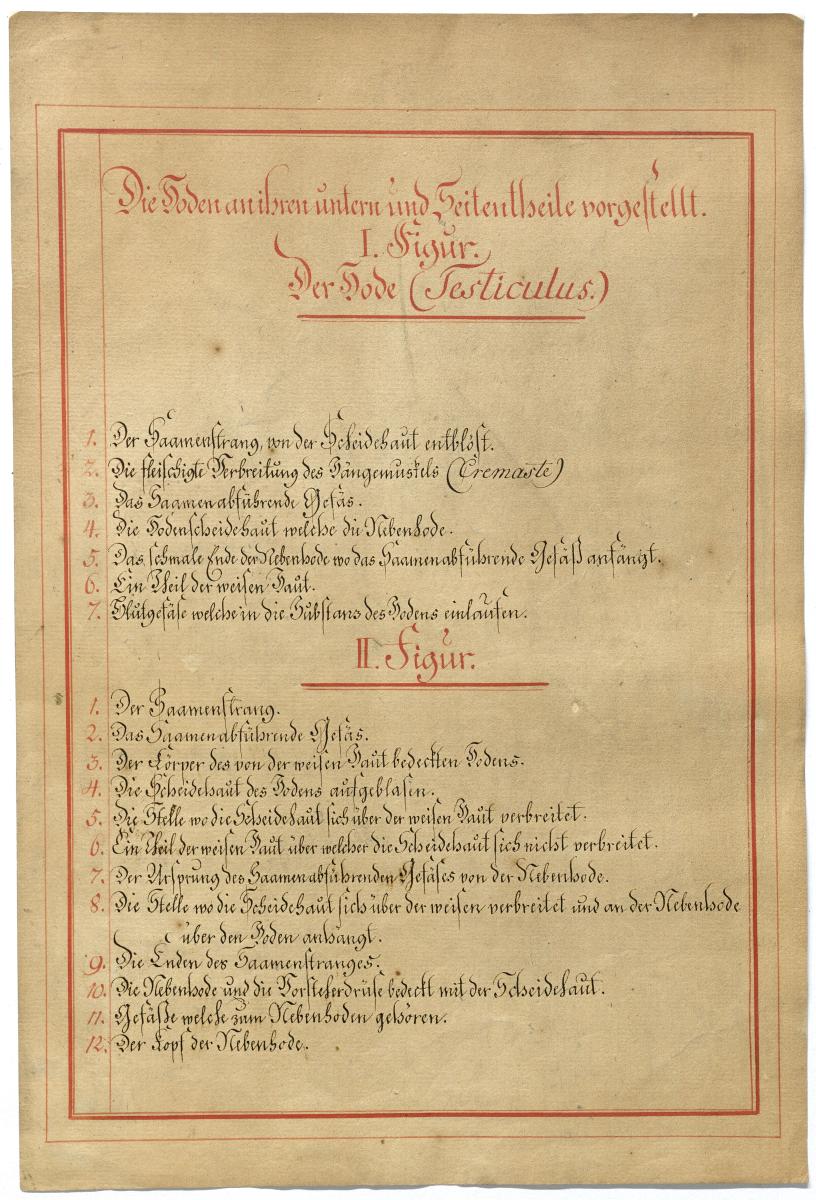 Die Hoden an ihren untern und Seitentheile vorgestellt.
I. Figur.
Der Hode (Testiculus.)
1. Der Saamenstrang, von der Scheidehaut entblöst.
2. Die fleischigte Verbreitung des Hängemuskels (Cremaste)
3. Das Saamenabführende Gefäs.
4. Die Hodenscheidehaut welche die Nebenhode.
5. Das schmale Ende der Nebenhode wo das Saamenabführende Gefäß anfängt.
6. Ein Theil der weisen Haut.
7. Blutgefäse welche in die Substans des Hodens einlaufen.
II. Figur.
1. Der Saamenstrang.
2. Das Saamenabführende Gefäs.
3. Der Körper des von der weisen Haut bedeckten Hodens.
4. Die Scheidehaut des Hodens aufgeblasen.
5. Die Stelle wo die Scheidehaut sich über der weisen Haut verbreitet.
6. Ein Theil der weisen Haut über welcher die Scheidehaut sich nicht verbreitet.
7. Der Ursprung des Saamenabführenden Gefäses von der Nebenhode.
8. Die Stelle wo die Scheidehaut sich über der weisen verbreitet und an der Nebenhode
über den Hoden anhängt.
9. Die Enden des Saamenstranges.
10. Die Nebenhode und die Vorsteherdrüse bedeckt mit der Scheidehaut.
11. Gefäße welche zum Nebenhoden gehören.
12. Der Kopf der Nebenhode.